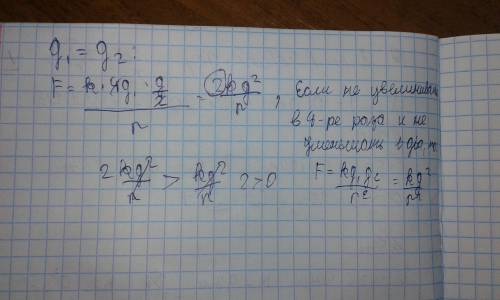 g₁ = g₂ :
F = k · 4g₁ · g/2 / r = 2kg²/r , Если не увеличивать
в 4-ре раза и не
уменьшать в два, то
2 kg²/r > kg²/r 2>0
F = kg₁g₂/r² = kg²/r²